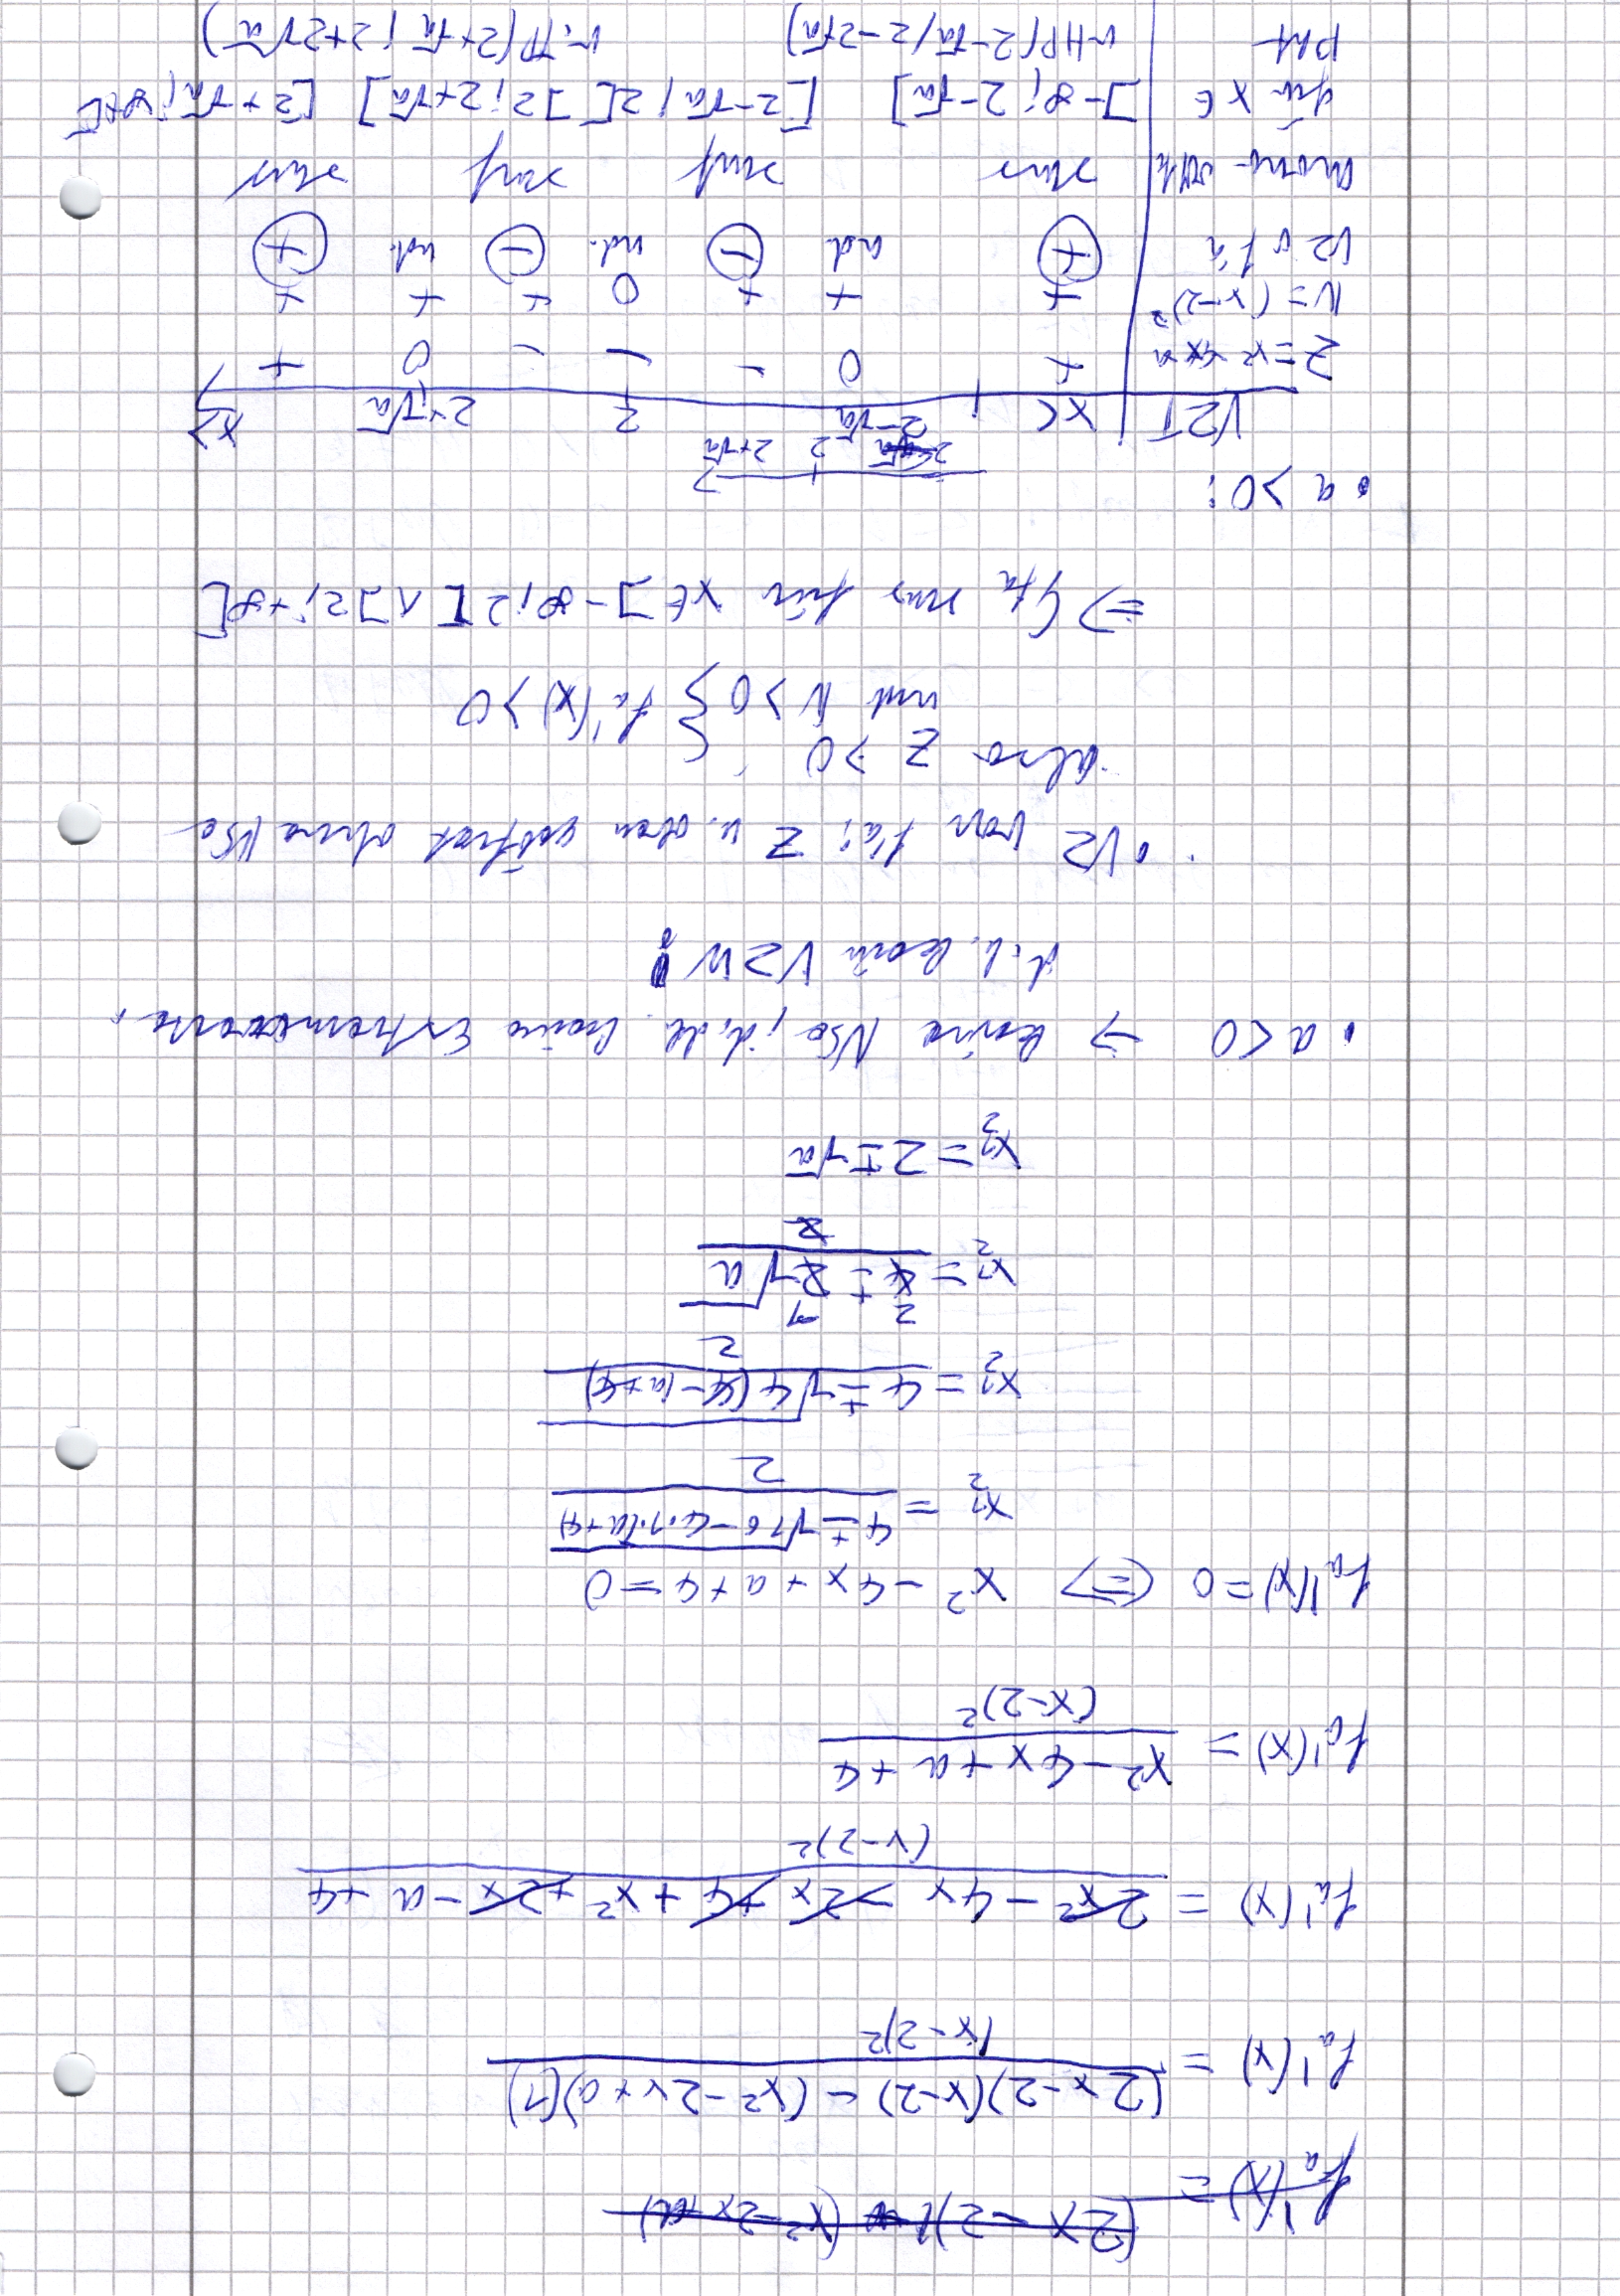 f_a'(x) = (2x-2)(x-2) - (x²-2x+a)(1) / (x-2)²
f_a'(x) = 2x² - 4x - 2x + 4 + x² + 2x - a + 4 / (x-2)²
f_a'(x) = x² - 4x + a + 4 / (x-2)²
f_a'(x) = 0 <=> x² - 4x + a + 4 = 0
x_1/2 = 4 ± √16 - 4·1·(a+4) / 2
x_1/2 = 4 ± √4(4-(a+4)) / 2
x_1/2 = 4 ± 2√a / 2
x_1/2 = 2 ± √a
• a < 0 → keine NSe, d.h. keine Extremwerte,
d.h. kein VZW!
• VZ von f'a: Z n. oben geöffnet ohne NSe
also Z > 0
und N > 0 } f_a'(x) > 0
=> G_fa sms für x ∈ ]-∞; 2[ ∧ ]2; +∞[
• a > 0:
2-√a 2 2+√a
VZT x< 2-√a 2 2+√a x>
Z = x² - 4x + a + 0 - - - 0 +
N = (x-2)² + + + 0 + + +
VZ v f'a + nd. - nd. - nd. +
mono- sms smf smf sms
für x ∈ ]-∞; 2-√a] [2-√a; 2[ ]2; 2+√a] [2+√a; +∞[
Pkt r. HP(2-√a/2-2√a) r. TP(2+√a; 2+2√a)